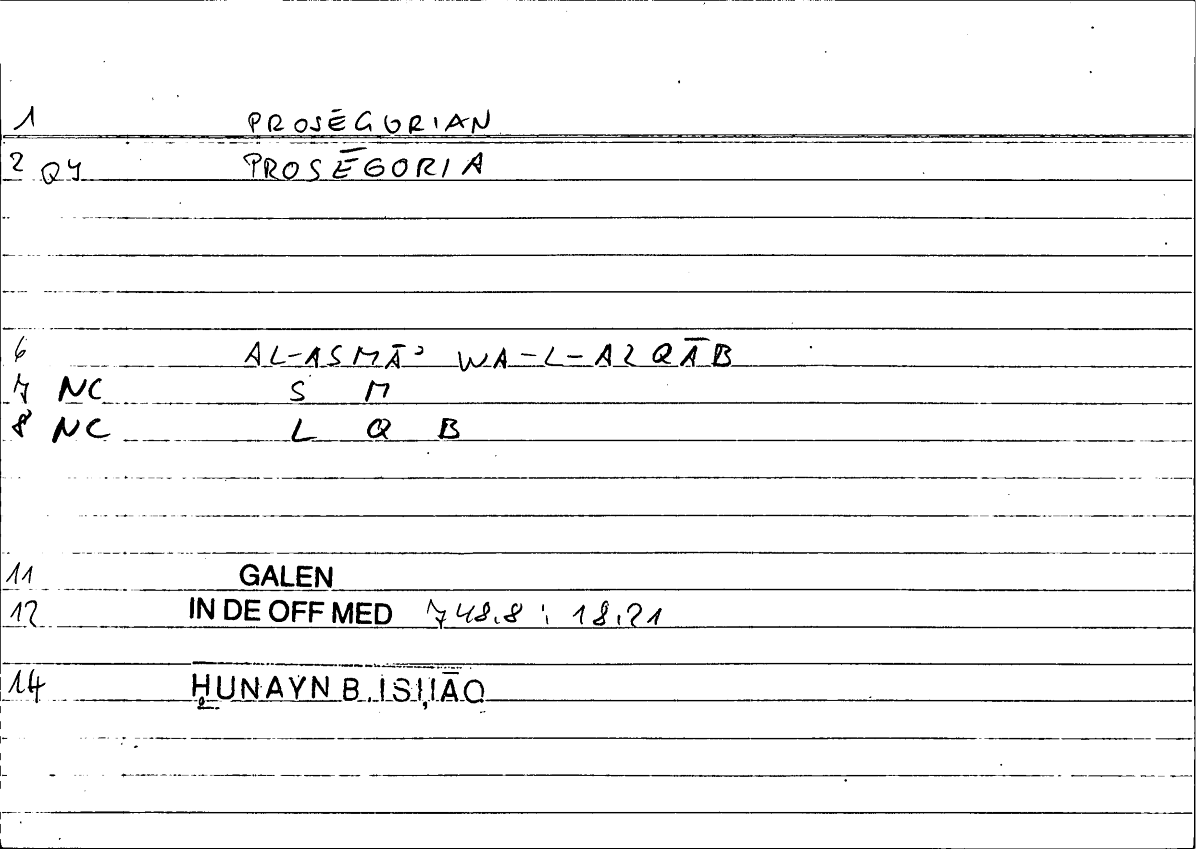 1 PROSĒGORIAN
2 QY PROSĒGORIA
6 AL-ASMĀʾ WA-L-ALQĀB
7 NC S M
8 NC L Q B
11 GALEN
12 IN DE OFF MED 748.8 ; 18.21
14 ḤUNAYN B. ISḤĀQ